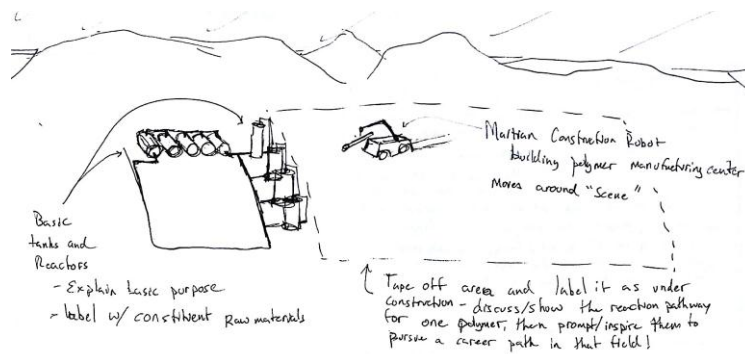 Martian Construction Robot
building polymer manufacturing center
Moves around "Scene"
Basic
tanks and
Reactors
- Explain basic purpose
- label w/ constituent Raw materials
Tape off area and label it as under
construction - discuss/show the reaction pathway
for one polymer, then prompt/inspire them to
pursue a career path in that field!